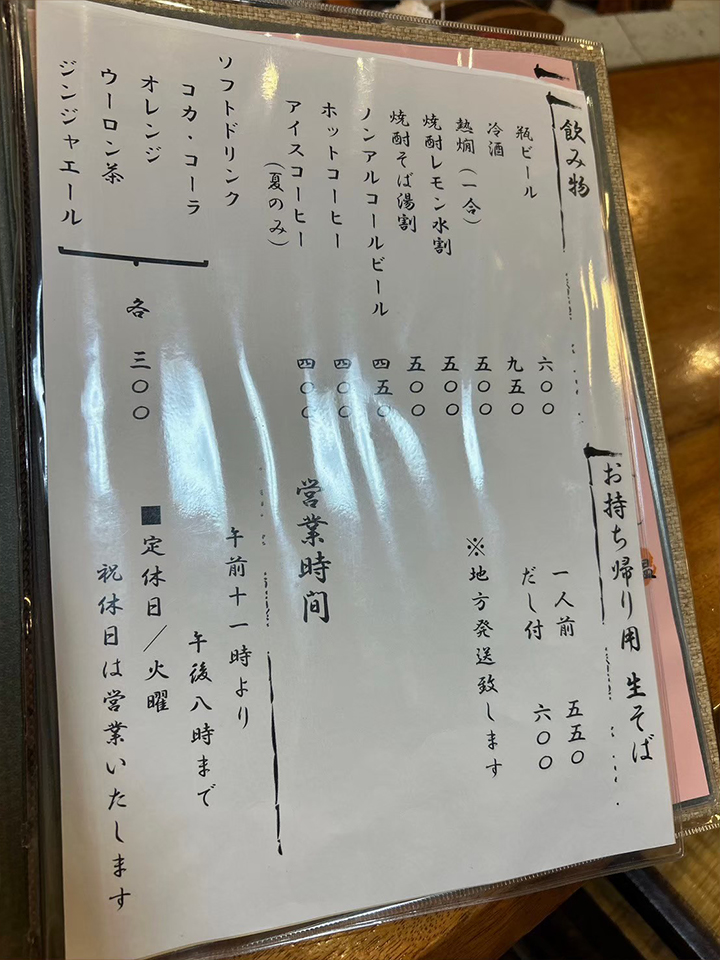 飲み物
瓶ビール 六〇〇
冷酒 九五〇
熱燗(一合) 五〇〇
焼酎レモン水割 五〇〇
焼酎そば湯割 五〇〇
ノンアルコールビール 四五〇
ホットコーヒー 四〇〇
アイスコーヒー 四〇〇
(夏のみ)
ソフトドリンク
コカ・コーラ
オレンジ
ウーロン茶
ジンジャエール
各 三〇〇
お持ち帰り用 生そば
一人前 五五〇
だし付 六〇〇
※地方発送致します
営業時间
午前十一時より
午後八時まで
■定休日/火曜
祝休日は営業いたします